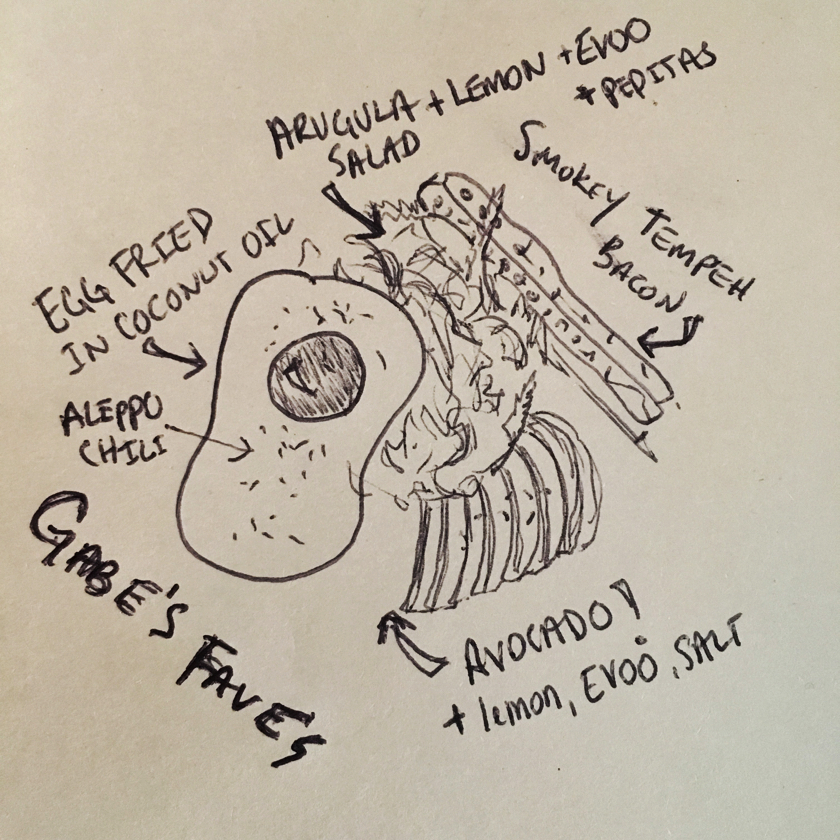 ARUGULA + LEMON + EVOO
+ PEPITAS
SALAD
SMOKEY TEMPEH
BACON
EGG FRIED
IN COCONUT OIL
ALEPPO
CHILI
GABE'S FAVES
AVOCADO!
+ lemon, EVOO, SALT